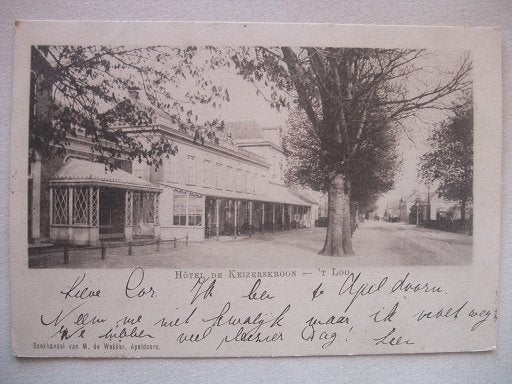 HÔTEL DE KEIZERSKROON — 'T LOO
Lieve Cor. Ik ben te Apeldoorn.
Neem me niet kwalijk maar ik moest weg.
We hebben veel plezier Dag!
Boekhandel van M. de Wekker, Apeldoorn.